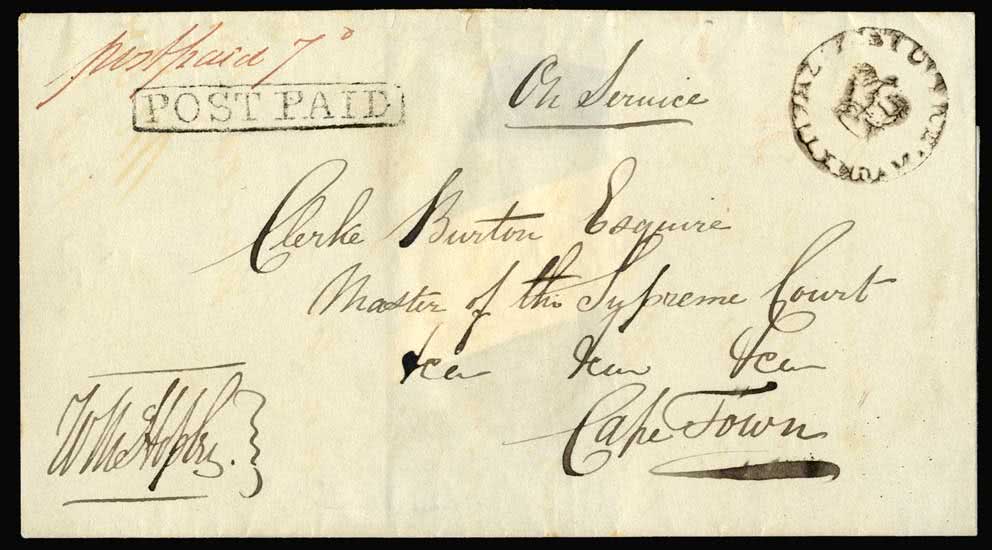 postpaid 7D
POST PAID
On Service
Clerke Burton Esquire
Master of the Supreme Court
&ca &ca &ca
Cape Town